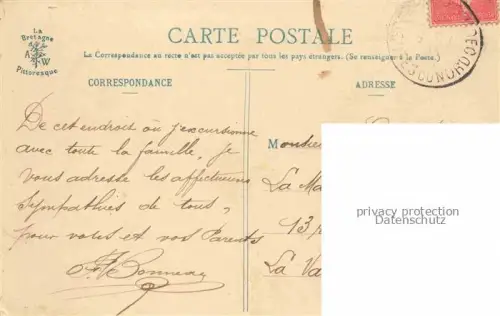 La
Bretagne
A W
Pittoresque
CARTE POSTALE
La Correspondance au recto n'est pas acceptée par tous les pays étrangers. (Se renseigner à la Poste.)
CORRESPONDANCE
ADRESSE
De cet endroit où j'excursionne
avec toute la famille, je
vous adresse les affectueuses
sympathies de tous,
pour vous et vos Parents
Bonneau
Monsieur
La
13
La
privacy protection
Datenschutz